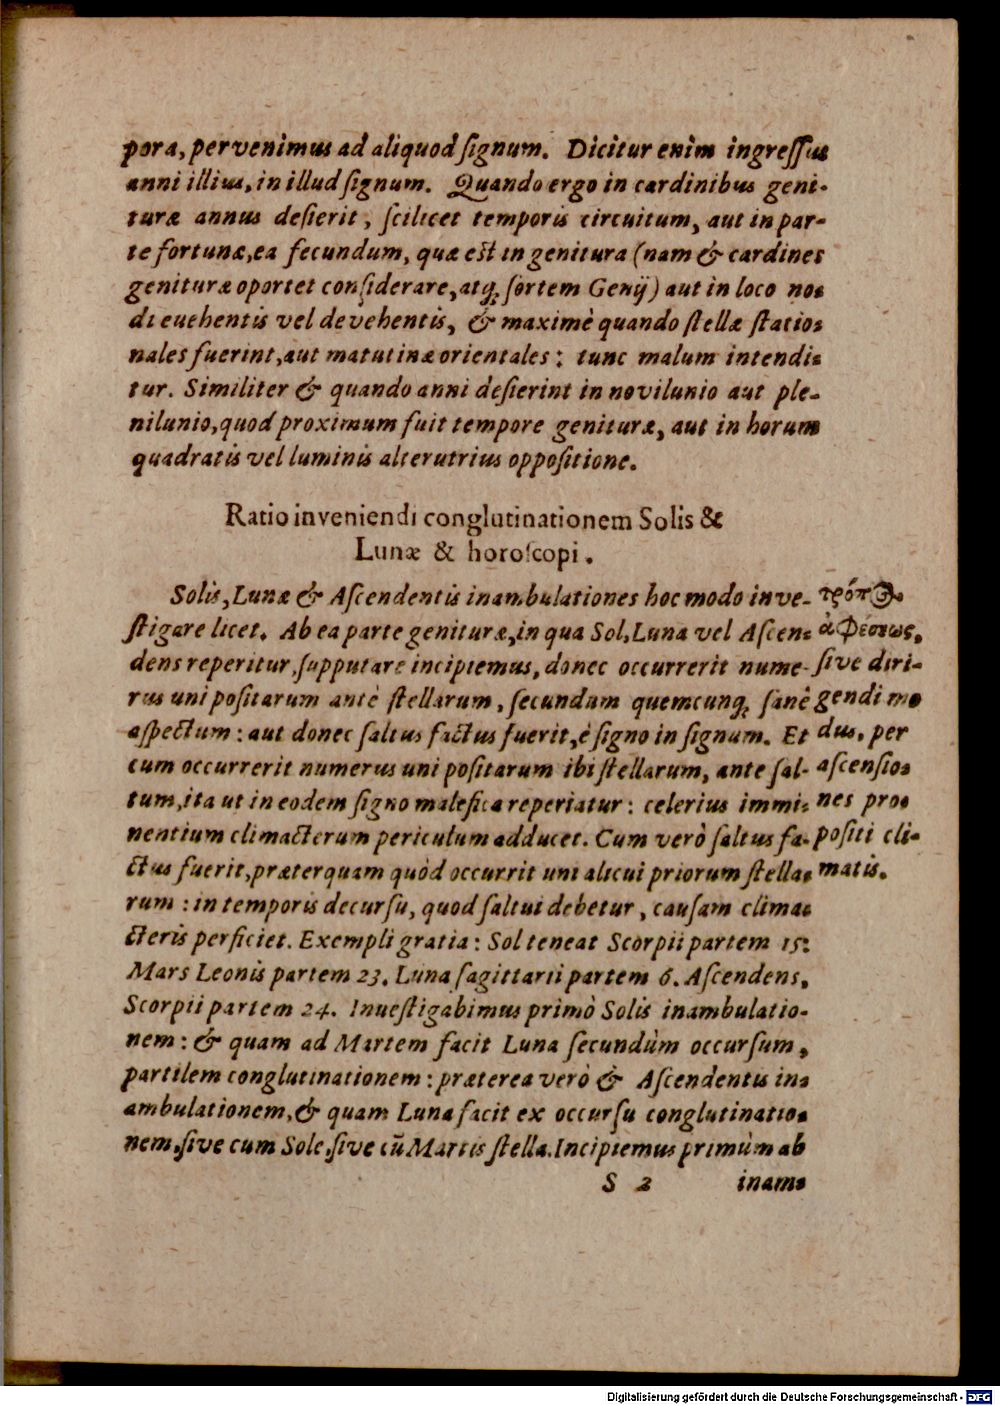 pora, pervenimus ad aliquod ſignum. Dicitur enim ingreſſus
anni illius, in illud ſignum. Quando ergo in cardinibus geni-
turæ annus deſierit, ſcilicet temporis circuitum, aut in par-
te fortunæ, ea fecundum, quæ est in genitura (nam & cardines
genituræ oportet conſiderare, atq; ſortem Genij) aut in loco no-
di euehentis vel devehentis, & maximè quando ſtellæ ſtatio-
nales fuerint, aut matutinæ orientales: tunc malum intendi-
tur. Similiter & quando anni deſierint in novilunio aut ple-
nilunio, quod proximum fuit tempore genituræ, aut in horum
quadratis vel luminis alterutrius oppoſitione.
Ratio inveniendi conglutinationem Solis &
Lunæ & horoſcopi.
Solis, Lunæ & Aſcendentis inambulationes hoc modo inve-
ſtigare licet. Ab ea parte genituræ, in qua Sol, Luna vel Aſcen-
dens reperitur, ſupputare incipiemus, donec occurrerit nume-
rus uni poſitarum antè ſtellarum, ſecundum quemcunq; ſanè
aſpectum: aut donec ſaltus factus fuerit, è ſigno in ſignum. Et
cum occurrerit numerus uni poſitarum ibi ſtellarum, ante ſal-
tum, ita ut in eodem ſigno malefica reperiatur: celerius immi-
nentium climacterum periculum adducet. Cum verò ſaltus fa-
ctus fuerit, præterquam quòd occurrit uni alicui priorum ſtella-
rum: in temporis decurſu, quod ſaltui debetur, cauſam clima-
cteris perficiet. Exempli gratia: Sol teneat Scorpii partem 15:
Mars Leonis partem 23. Luna ſagittarii partem 6. Aſcendens,
Scorpii partem 24. Inueſtigabimus primò Solis inambulatio-
nem: & quam ad Martem facit Luna ſecundùm occurſum,
partilem conglutinationem: præterea verò & Aſcendentis in-
ambulationem, & quam Luna facit ex occurſu conglutinatio-
nem, ſive cum Sole, ſive cū Martis ſtella. Incipiemus primùm ab
S 2 inam-
τρόπος
ἀφέσεως,
ſive diri-
gendi mo
dus, per
aſcenſio-
nes pro-
poſiti cli-
matis.
Digitalisierung gefördert durch die Deutsche Forschungsgemeinschaft - DFG